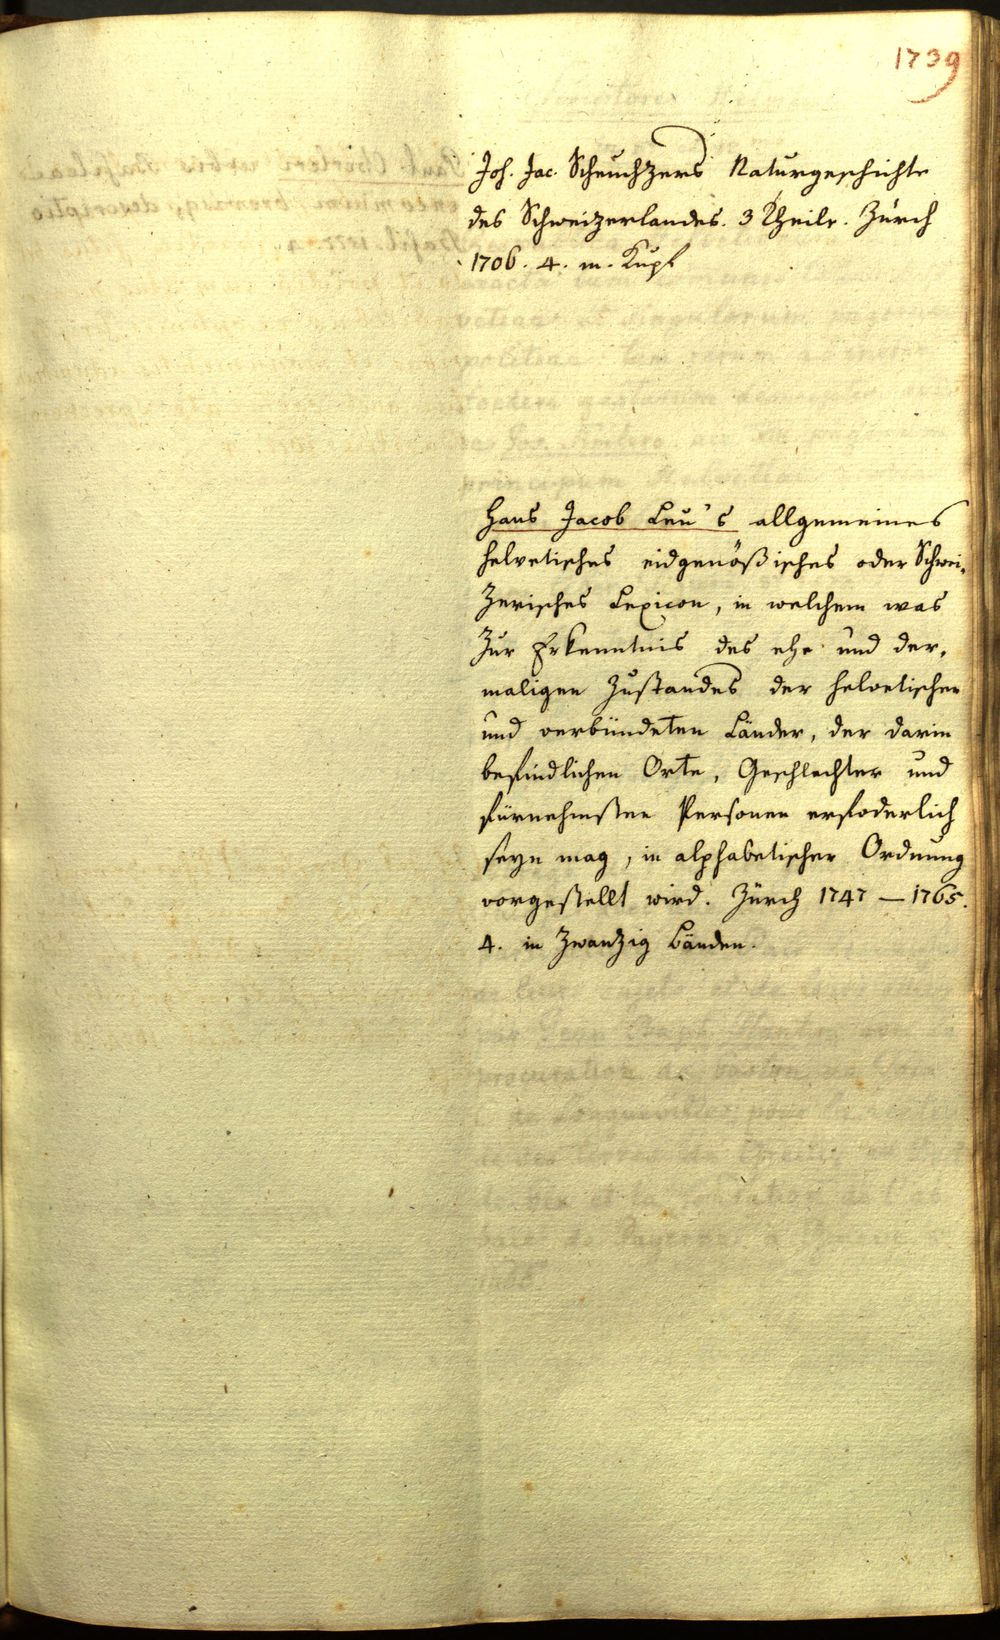 1739
Joh. Jac. Scheuchzers Naturgeschichte
des Schweizerlandes. 3 Theile. Zürch
1706. 4. m. Kupf
Hans Jacob Leu's allgemeines
helvetisches eidgenößisches oder Schwei-
zerisches Lexicon, in welchem was
zur Erkenntnis des ehe und der-
maligen Zustandes der helvetischen
und verbündeten Länder, der darin
befindlichen Orte, Geschlechter und
fürnehmsten Personen erfoderlich
seyn mag, in alphabetischer Ordnung
vorgestellt wird. Zürch 1747 — 1765.
4. in zwanzig Bänden.